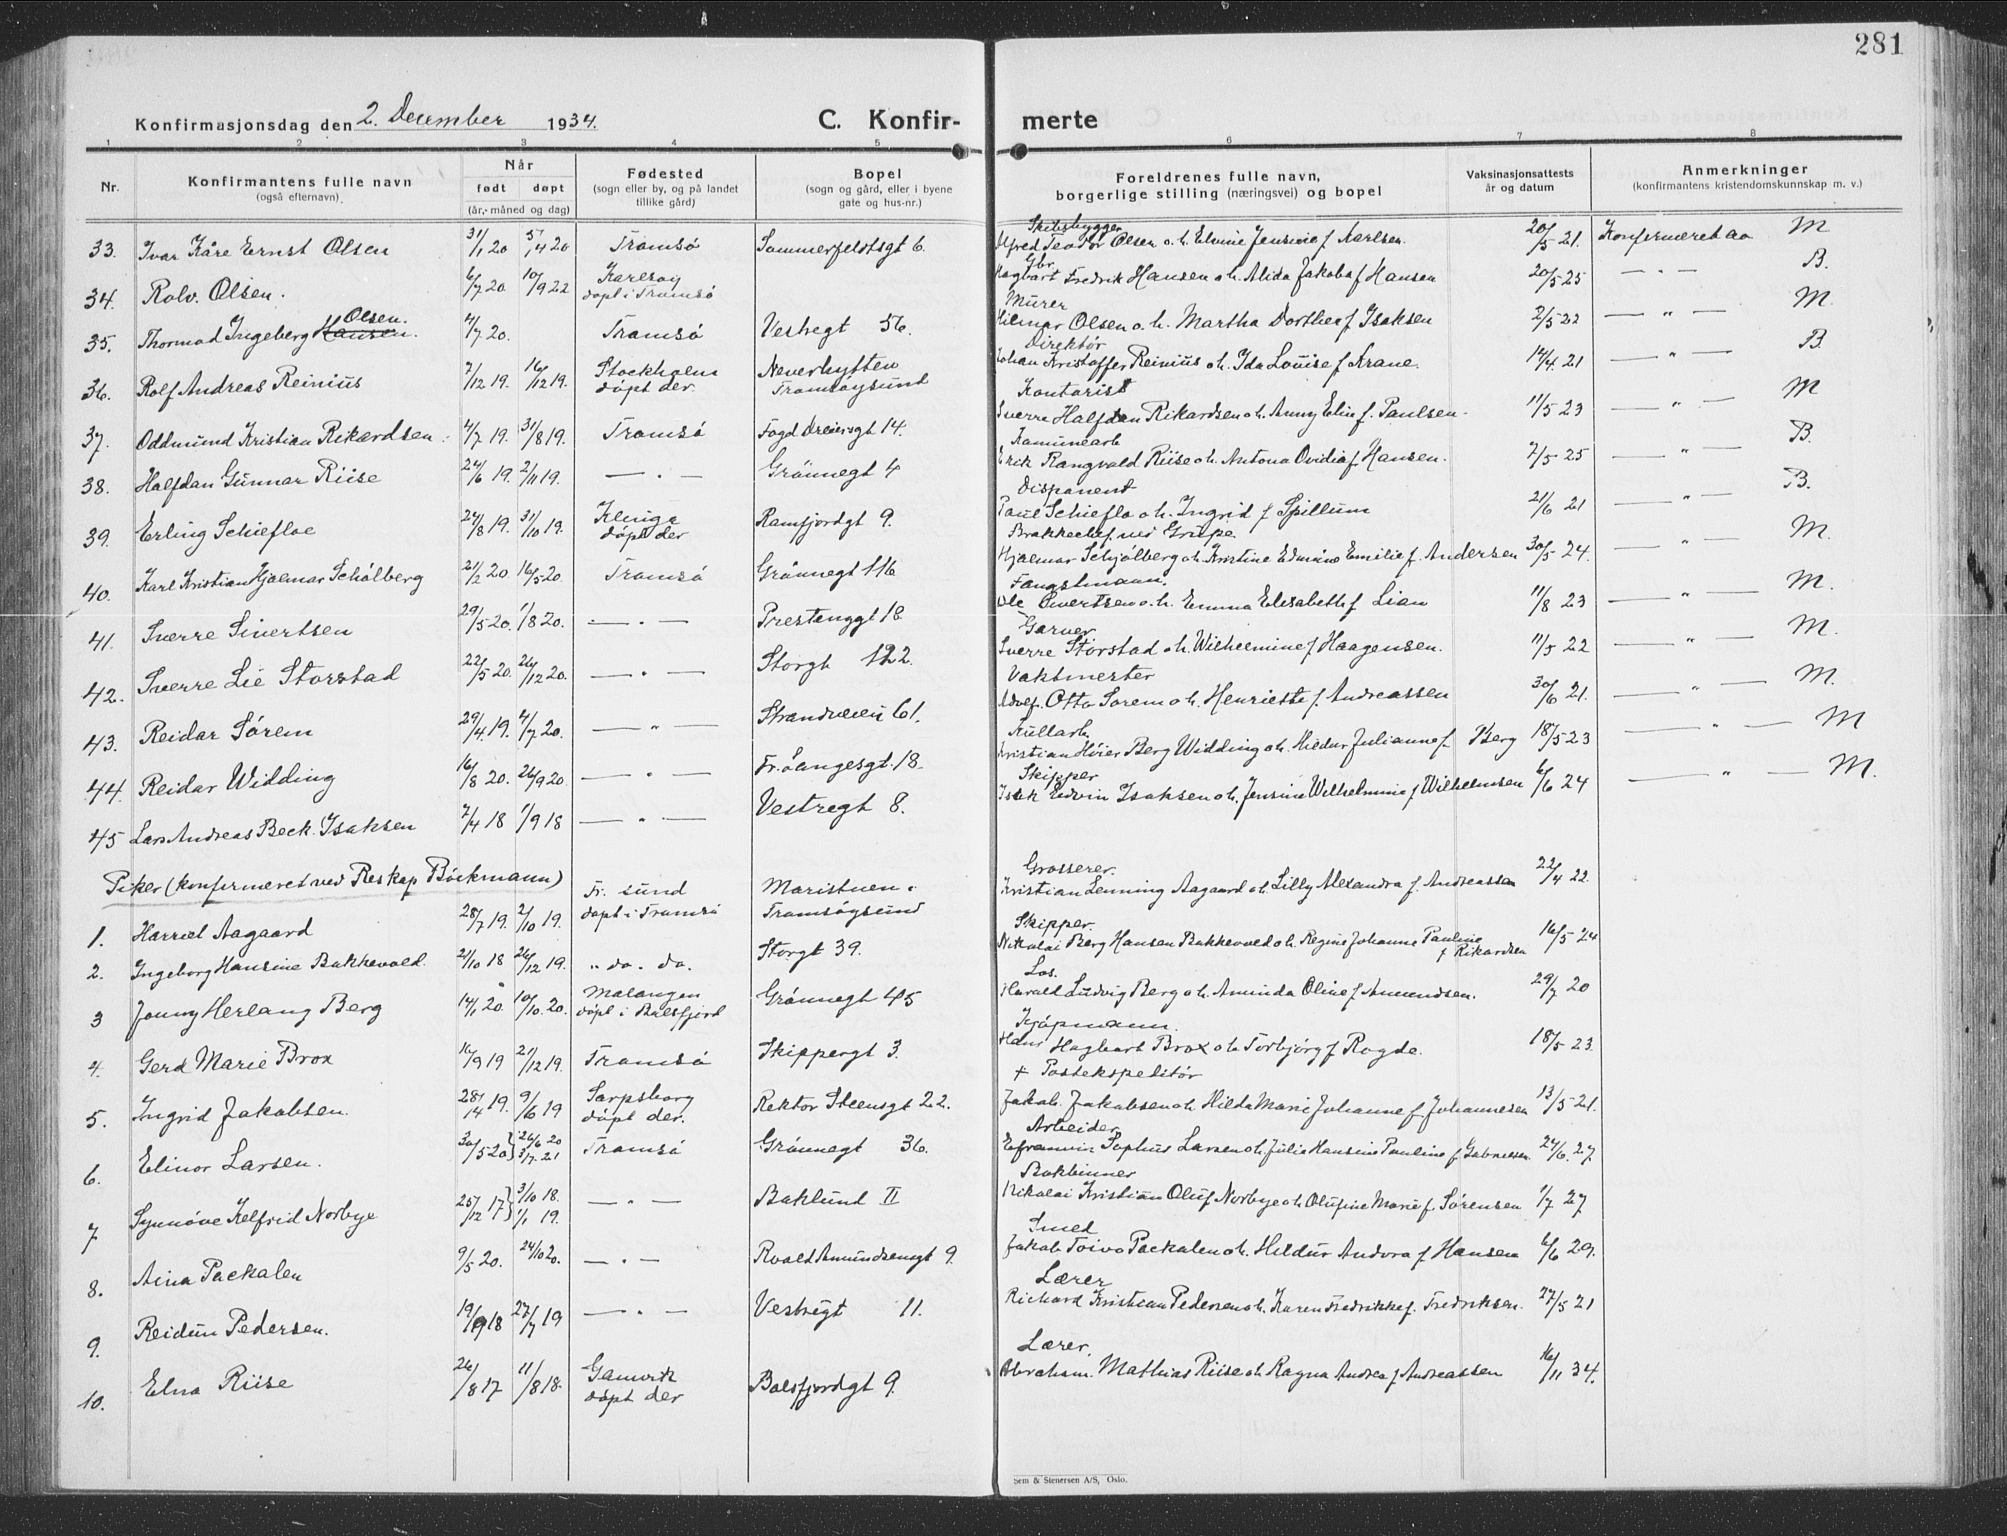 281
Konfirmasjonsdag den 2. December 1934.
C. Konfir-
merte
1 2 3 4 5 6 7 8
Nr.
Konfirmantens fulle navn
(også efternavn).
Når
født døpt
(år,- måned og dag)
Fødested
(sogn eller by, og på landet
tillike gård)
Bopel
(sogn og gård, eller i byene
gate og hus-nr.)
Foreldrenes fulle navn,
borgerlige stilling (næringsvei) og bopel
Vaksinasjonsattests
år og datum
Anmerkninger
(konfirmantens kristendomskunnskap m. v.)
Skibsbygger
33. Ivar Kåre Ernst Olsen 31/1 20 5/4 20 Tromsø Sommerfeldtsgt 6. Alfred Teodor Olsen o. h. Elvine Jensine f Karlsen. 20/5 21. Konfirmeret aa M
Gbr.
34. Rolv. Olsen. 6/7 20 10/9 22 Karlsøy døpt i Tromsø Hagbart Fredrik Hansen o h. Alida Jakoba f Hansen 20/5 25 — " — B.
Murer
35. Thormod Ingeberg Hansen. Olsen. 4/7 20. Tromsø Vestregt 56. Hilmar Olsen o. h. Martha Dorthea f Isaksen 2/5 22 — " — M.
Direktør
36. Rolf Andreas Reinius 7/12 19. 16/12 19. Stockholm døpt der. Neverhytten Tromsøysund Johan Kristoffer Reinius o h. Ida Louise f Krane. 14/4 21 — " — B
Kontorist
37. Oddmund Kristian Rikardsen. 4/7 19. 31/8 19. Tromsø Fogd Dreiersgt 14. Sverre Halfdan Rikardsen o h. Anny Elin f. Paulsen. 11/5 23 — " — M
Komunearb
38. Halfdan Gunnar Riise 24/6 19. 2/11 19. — " — Grønnegt 4 Erik Rangvald Riise o h. Antona Ovidia f Hansen. 7/5 25 — " — B.
Disponent
39. Erling Schiefloe 24/8 19. 31/10 19. Klinga døpt der Ramfjordgt 9. Paul Schieflo o h. Ingrid f Spillum 21/6 21 — " — B.
Brakkechef ved Grupe.
40. Karl Kristian Hjalmar Schølberg 21/2 20 16/5 20. Tromsø Grønnegt 116 Hjalmar Schjølberg o h. Kristine Edmine Emilie f. Andersen 30/5 24. — " — M.
Fangstmann.
41. Sverre Sivertsen 29/5 20. 1/8 20. — " — Prestenggt 18 Ole Sivertsen o. h. Emma Elisabeth f Lian 11/8 23 — " — M.
Garver
42. Sverre Lie Storstad 22/5 20. 26/12 20. — " — Storgt 122. Sverre Storstad o h. Wilhelmine f Haagensen. 11/5 22 — " — M.
Vaktmester
43. Reidar Sørem 29/4 19. 4/7 20. — " — Strandveien 61. Adolf Otto Sorem o h. Henriette f. Andreassen 30/6 21. — " — M.
Kullarb.
44. Reidar Widding 16/8 20. 26/9 20. — " — Fr. Langesgt. 18. Kristian Höier Berg Widding o h. Hildur Julianne f Berg 18/5 23 — " — M
Skipper
45 Lars Andreas Beck. Isaksen 7/4 18 1/9 18 — " — Vestregt 8. Isak Edvin Isaksen o h. Jensine Wilhelmine f Wilhelmsen 6/6 24 — " — M.
Piker (konfirmeret ved Res kap Bøckmann)
Grosserer.
1. Harriet Aagaard 28/7 19. 2/10 19. Tr. sund døpt i Tromsø Maristuen. Tromsøysund Kristian Lenning Aagaard o h. Lilly Alexandra f. Andreassen 22/4 22.
Skipper.
2. Ingeborg Hansine Bakkevold. 21/10 18 26/12 19. " do. do. Storgt 39. Nikolai Berg Hansen Bakkevold o h. Regine Johanne Pauline f Rikardsen 16/5 24
Los.
3 Jonny Herlaug Berg 14/1 20. 10/10 20. Malangen døpt i Balsfjord Grønnegt 45 Harald Ludvig Berg o h. Aminda Oline f Amundsen. 29/7 20
Kjøpmann.
4. Gerd Marie Brox 10/9 19 21/12 19. Tromsø Skippergt 3. Hans Hagbart Brox o h Torbjørg f Rogde. 18/5 23.
+ Postekspeditør
5. Ingrid Jakobsen. 28/4 19. 9/6 19 Sarpsborg døpt der. Rektor Steensgt 22. Jakob. Jakobsen o h. Hilda Marie Johanne f Johannesen 13/5 21.
Arbeider
6. Elinor Larsen. 30/5 20 26/6 20 3/7 21 Tromsø Grønnegt 36. Efraimin Sophus Larsen o h. Julie Hansine Pauline f Gabrielsen 24/6. 27.
Bokbinner
7 Synnøve Kelfrid Norbye 25/12 17 3/10 18. 1/1 19. — " — Baklund II Nikolai Kristian Oluf Norbye o h Olufine Marie f. Sørensen 1/7 27
Smed
8. Aina Packalen 9/5 20. 24/10 20. — " — Roald Amundsensgt 9. Jakob Toivo Packalen o h. Hildur Andora f Hansen 6/6 29.
Lærer
9. Reidun Pedersen. 19/9 18 27/7 19 — " — Vestregt 11. Richard Kristian Pedersen o h. Karen Fredrikke f. Fredriksen. 27/5 21
Lærer.
10. Elna Riise 26/8 17 11/8 18. Gamvik døpt der Balsfjordgt 9. Abraham. Mathias Riise o h Ragna Andrea f Andreassen 16/11 34.
Sem & Stenersen A/S, Oslo.